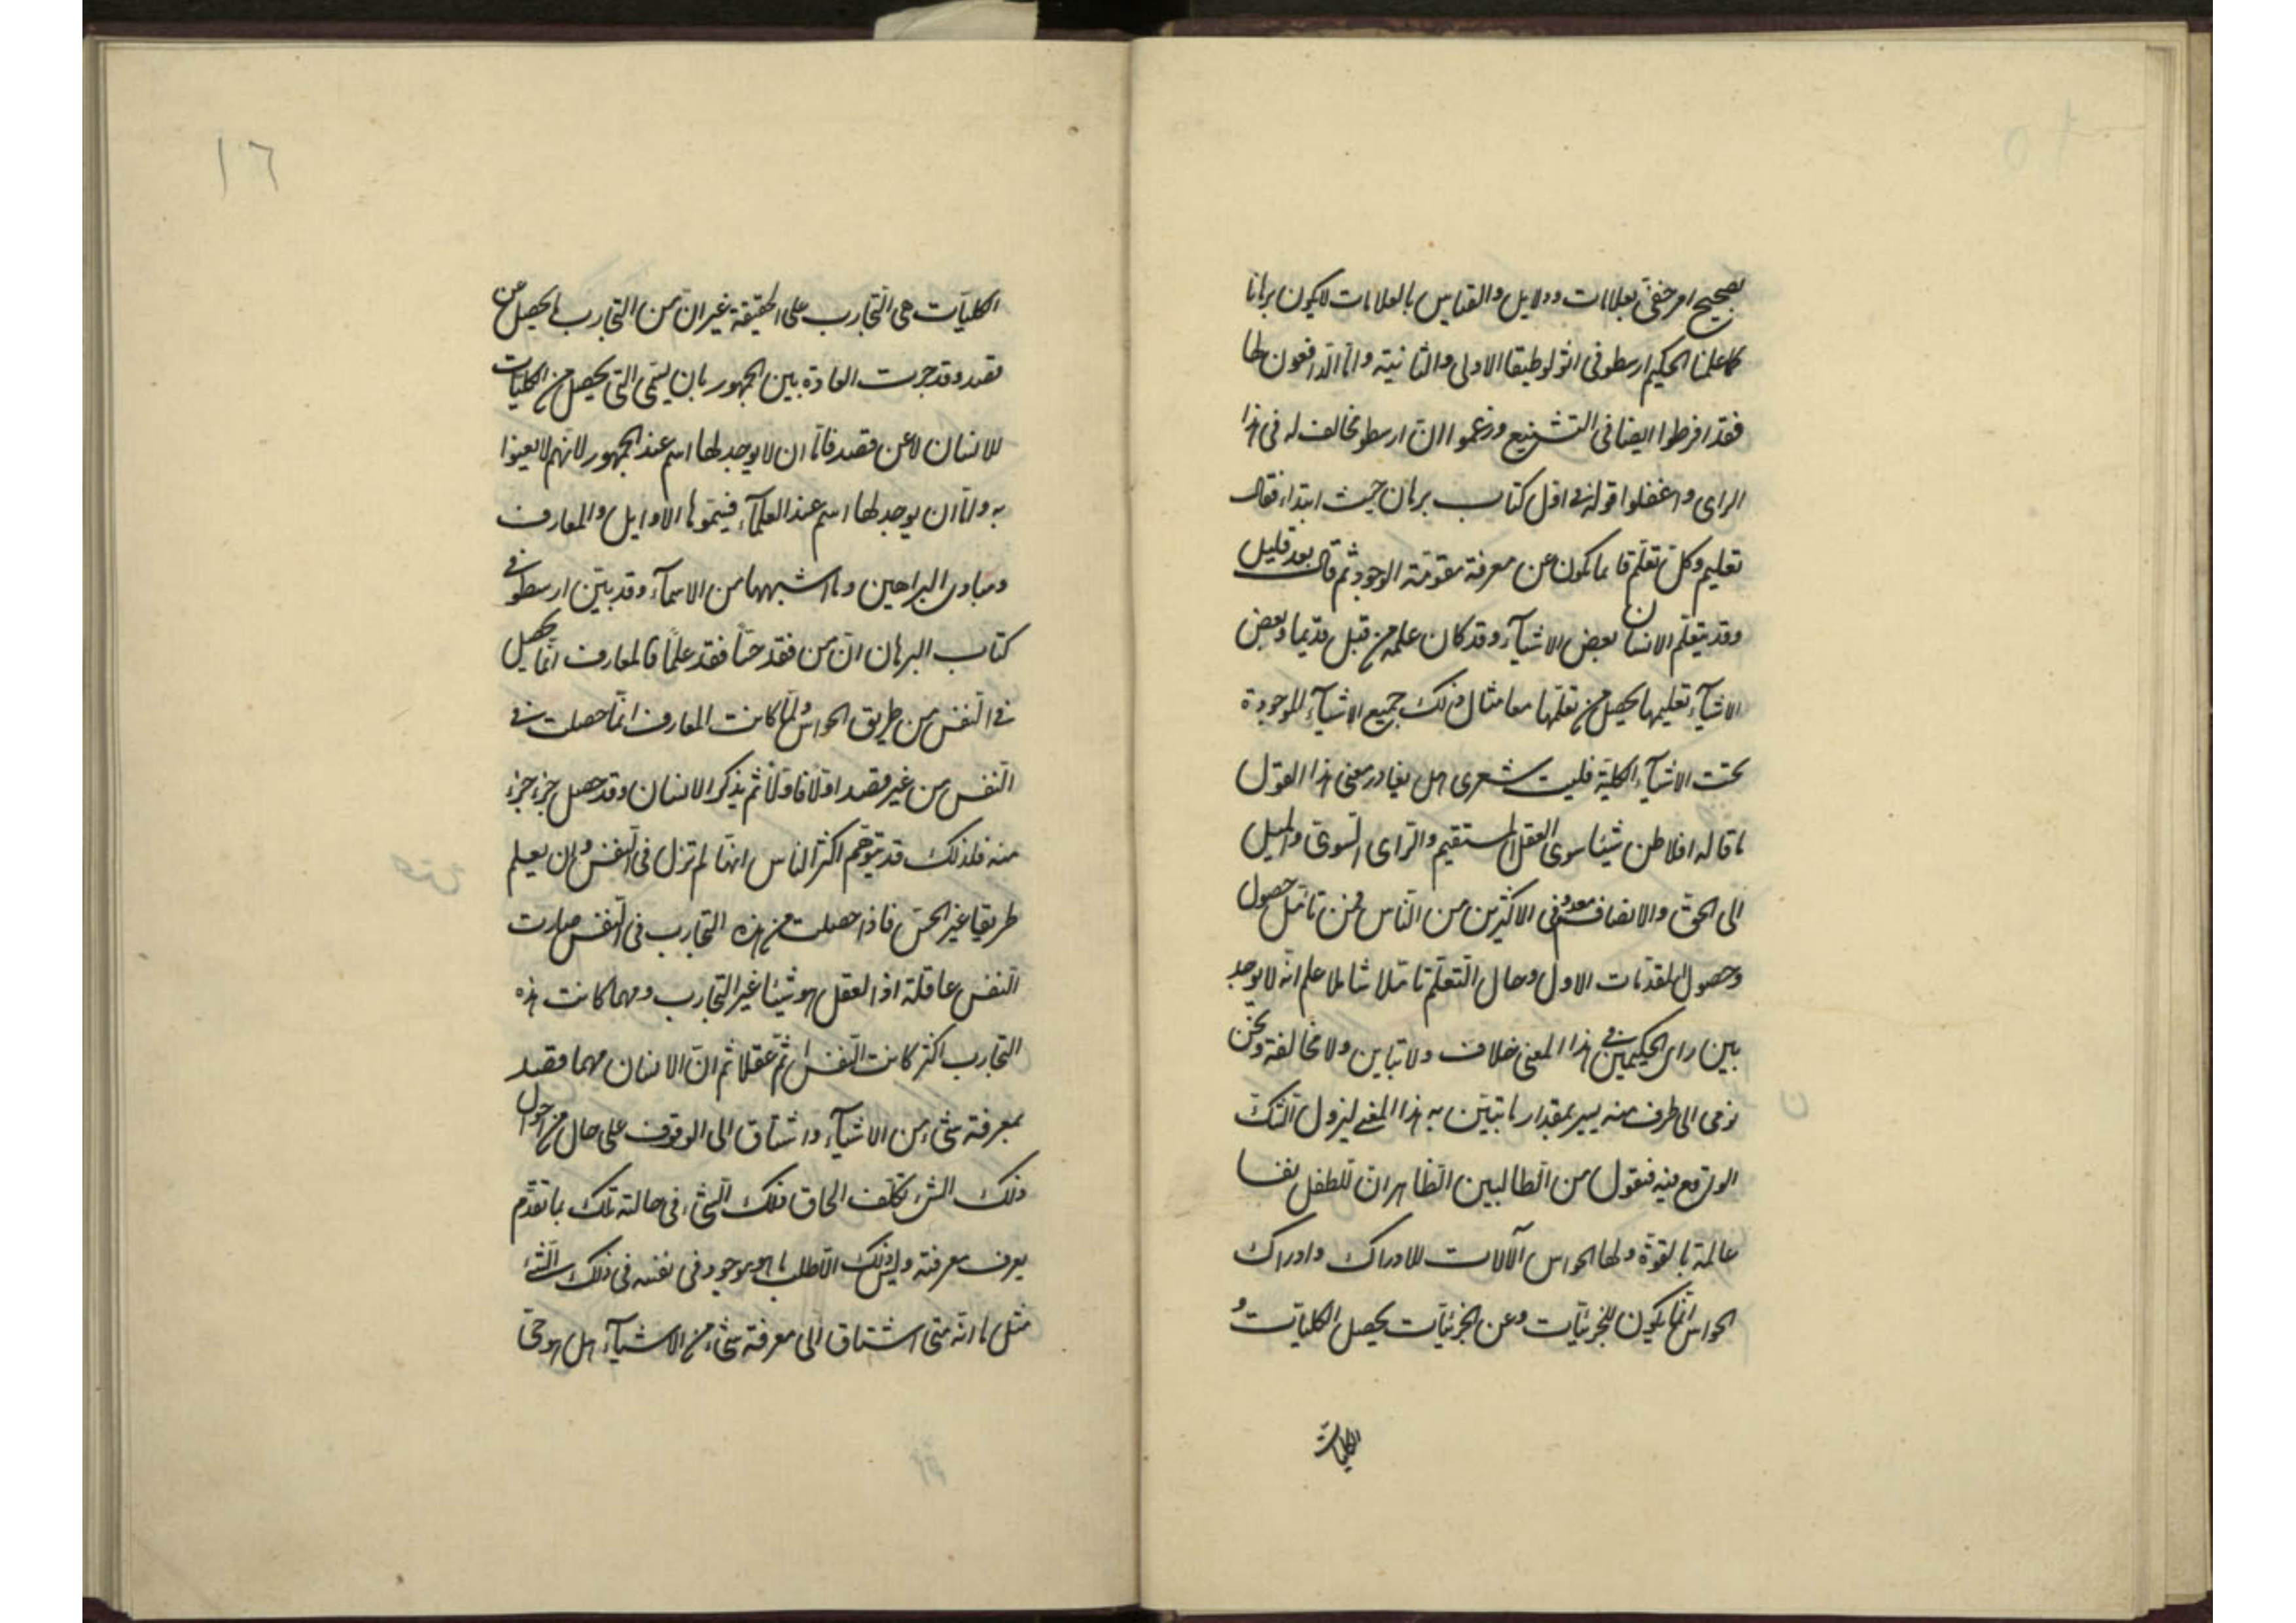 بصحيح امر خفى بعلامات ودلايل والقياس بالعلامات لا يكون برهانا
كما علمنا الحكيم ارسطو فى انولوطيقا الاولى والثانية واما الدافعون لها
فقد افرطوا ايضا فى التشنيع وزعموا ان ارسطو مخالف له فى هذا
الراى واغفلوا قوله فى اول كتاب برهان حيث ابتداء فقال
تعليم وكل تعلم فانما يكون عن معرفة متقومة الوجود ثم قال بعد قليل
وقد يتعلم الانسان بعض الاشيآء وقد كان علمه من قبل قديما وبعض
الاشيآء تعليمها يحصل من تعلمها معا مثال ذلك جميع الاشيآء الموجودة
تحت الاشيآء الكلية فليت شعرى هل يغادر معنى هذا القول
ما قاله افلاطن شيئا سوى العقل المستقيم والراى السوى والميل
الى الحق والانصاف معدوم فى الاكثرين من الناس فمن تامل حصول
وحصول المقدمات الاول وحال التعلم تاملا شاملا علم انه لا يوجد
بين راى الحكيمين فى هذا المعنى خلاف ولا تباين ولا مخالفة ونحن
نومى الى طرف منه يسير بمقدار ما يتبين به هذا المعنى ليزول الشك
الواقع فيه فنقول من الطالبين الظاهر ان للطفل نفسا
عالمة بالقوة ولها الحواس آلالات للادراك وادراك
الحواس انما يكون للجزئيات وعن الجزئيات يحصل الكليات و
الكليات
١٦
الكليات هى التجارب على الحقيقة غير ان من التجارب ما يحصل عن
قصد وقد جرت العادة بين الجمهور بان يسمى التى يحصل من الكليات
للانسان لا عن قصد فاما ان لا يوجد لها اسم عند الجمهور لانهم لا يعينوا
به واما ان يوجد لها اسم عند العلمآء فيسموها الاوايل والمعارف
ومبادى البراهين وما اشبهها من الاسمآء وقد بين ارسطو فى
كتاب البرهان ان من فقد حسا فقد علما فالمعارف انما يحصل
فى النفس من طريق الحواس ولما كانت المعارف انما حصلت فى
النفس من غير قصد اولا فاولا ثم يذكر الانسان وقد حصل جزء جزء
منه فلذلك قد يتوهم اكثر الناس انها لم تزل فى النفس وان يعلم
طريقا غير الحس فاذا حصلت من هذه التجارب فى النفس صارت
النفس عاقلة اذ العقل هو شيئا غير التجارب ومهما كانت هذه
التجارب اكثر كانت النفس اتم عقلا ثم ان الانسان مهما قصد
بمعرفة شىء من الاشيآء واشتاق الى الوقوف على حال من احوال
ذلك الشىء تكلف الحاق ذلك الشىء فى حالته تلك بما تقدم
يعرف معرفته وليس ذلك الا طلب ما هو موجود فى نفسه فى ذلك الشىء
مثل ما انه متى اشتاق الى معرفة شىء من الاشيآء هل هو حى